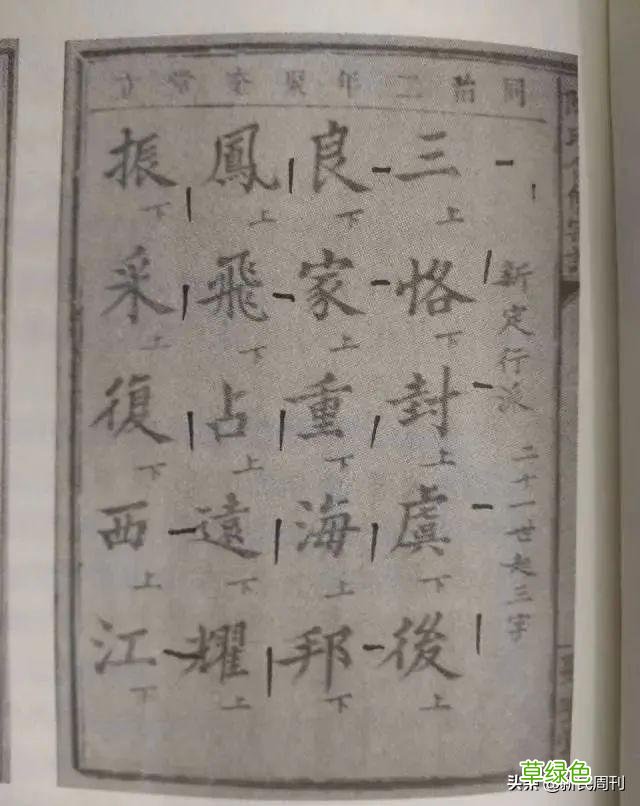 同治二年聚奎堂立
新定行派 二十一世起三字
三上恪下封上虞下後上
良下家上重下海上邦下
鳳上飛下占上遠下耀上
振下采上復下西上江下
草绿色
头条 @新民周刊